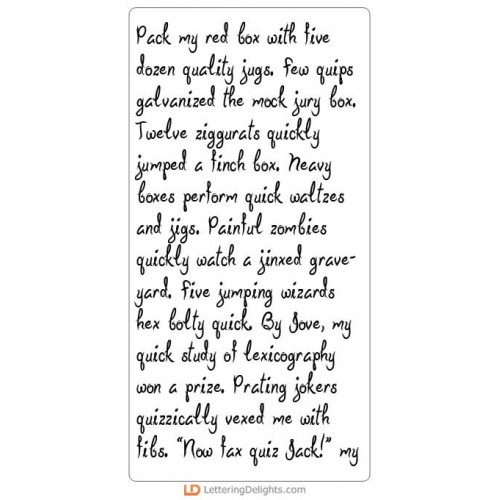 Pack my red box with five
dozen quality jugs. Few quips
galvanized the mock jury box.
Twelve ziggurats quickly
jumped a finch box. Heavy
boxes perform quick waltzes
and jigs. Painful zombies
quickly watch a jinxed grave-
yard. Five jumping wizards
hex bolty quick. By Jove, my
quick study of lexicography
won a prize. Prating jokers
quizzically vexed me with
fibs. "Now fax quiz Jack!" my
LD LetteringDelights.com